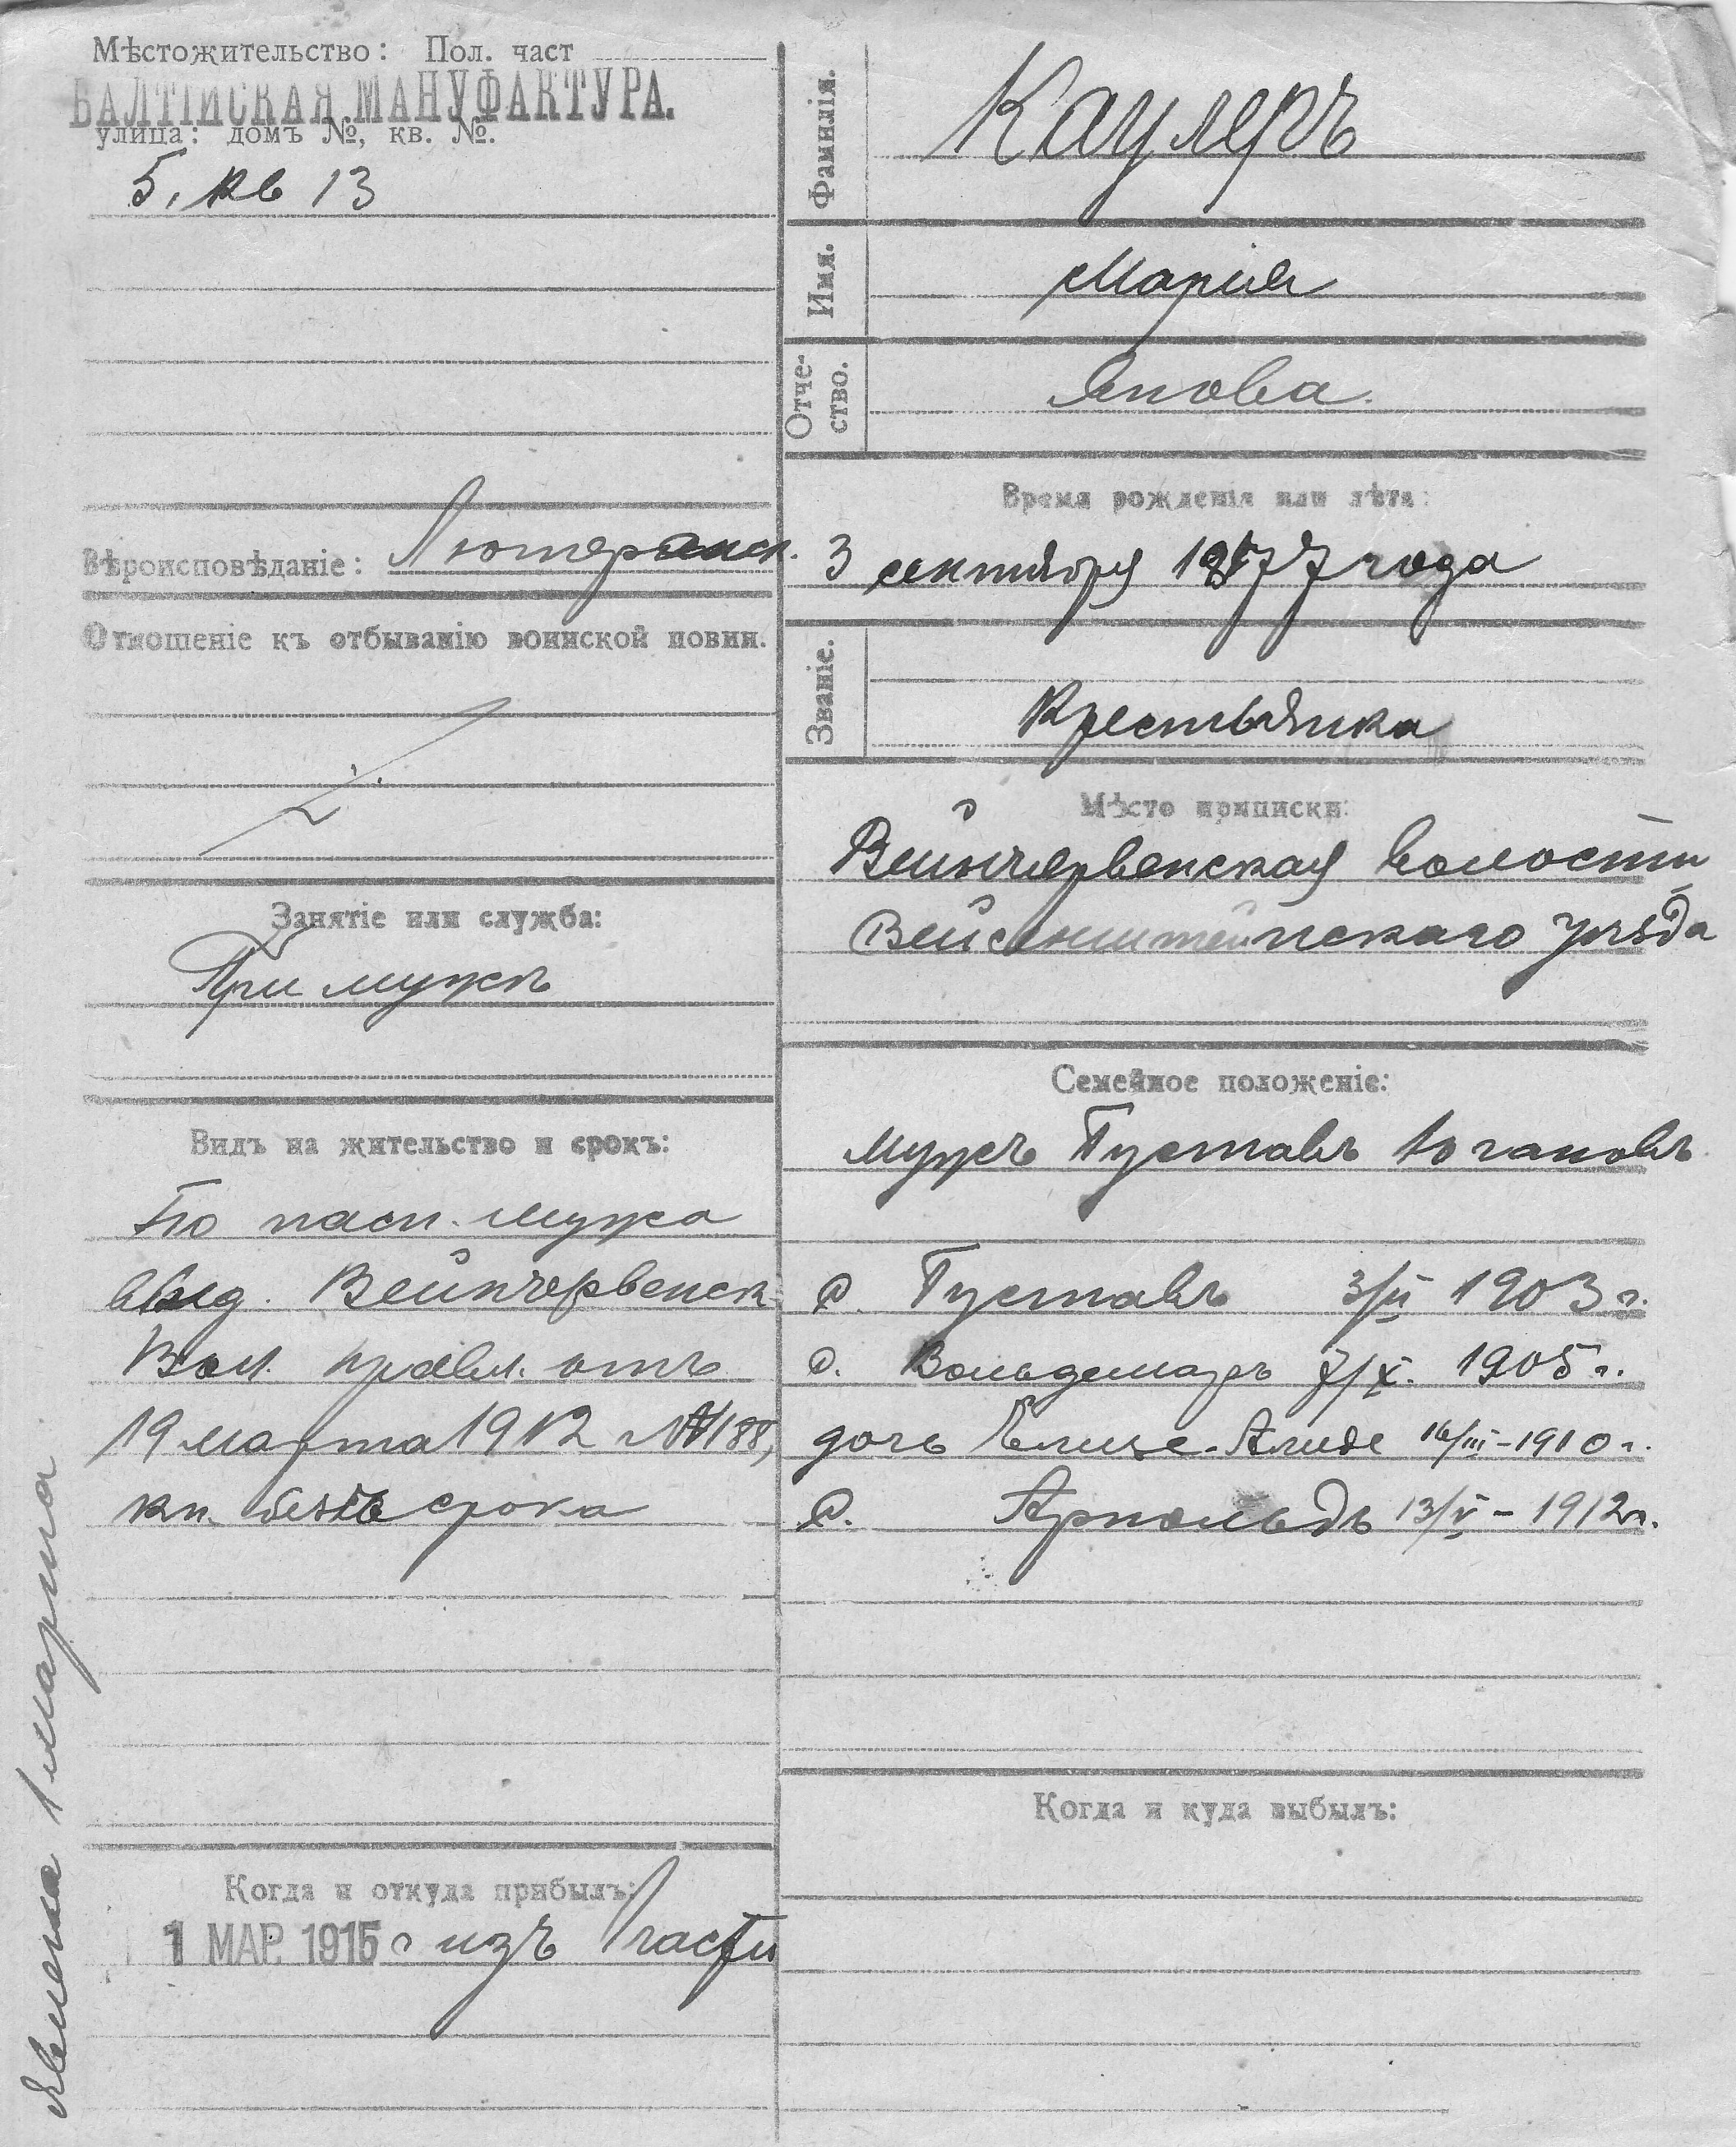 Мѣстожительство: Пол. част
БАЛТІЙСКАЯ МАНУФАКТУРА.
улица: домъ №, кв. №.
5, кв 13
Вѣроисповѣданіе: Лютеранск.
Отношеніе къ отбыванію воинской повин.
Занятіе или служба:
При мужѣ
Видъ на жительство и срокъ:
По пасп. мужа
выд. Вейнчервенск
Вол. правл. отъ
19 марта 1912 №188,
кн. безъ срока
Когда и откуда прибылъ:
1 МАР. 1915 г изъ части
Явлена 1 марта
Фамилія. Каулеръ
Имя. Марія
Отче-
ство. Янова
Время рожденія или лѣта:
3 сентября 1877 года
Званіе.
Крестьянка
Мѣсто приписки:
Вейнчервенская волости
Вейсенштейнскаго уѣзда
Семейное положеніе:
мужъ Густавъ Югановъ
с. Густавъ 3/II 1903 г.
с. Вольдемаръ 7/X. 1905 г.
дочь Елизе-Алиде 16/III-1910 г.
с. Арнольдъ 13/V - 1912 г.
Когда и куда выбылъ: